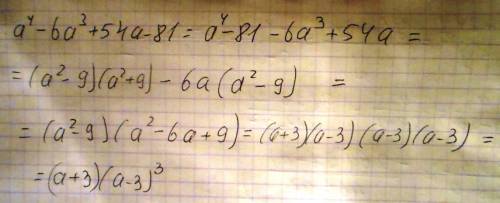 a⁴-6a³+54a-81=a⁴-81-6a³+54a=
=(a²-9)(a²+9)-6a(a²-9) =
=(a²-9)(a²-6a+9)=(a+3)(a-3)(a-3)(a-3)=
=(a+3)(a-3)³